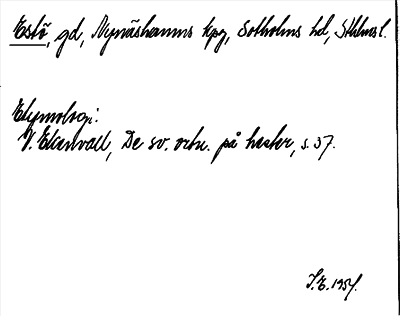 Estö, gd, Nynäshamns kpg, Sotholms hd, Sthlms l.
Etymologi:
V. Ekenvall, De sv. ortn. på hester, s. 37.
I.E. 1954.